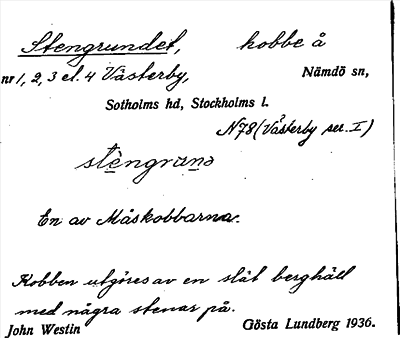 Stengrundet, kobbe å
nr 1, 2, 3 el. 4 Västerby, Nämdö sn,
Sotholms hd, Stockholms l.
N78 (Västerby ser. I)
stèngrunḍ
En av Måskobbarna.
Kobben utgöres av en slät berghäll
med några stenar på.
John Westin Gösta Lundberg 1936.